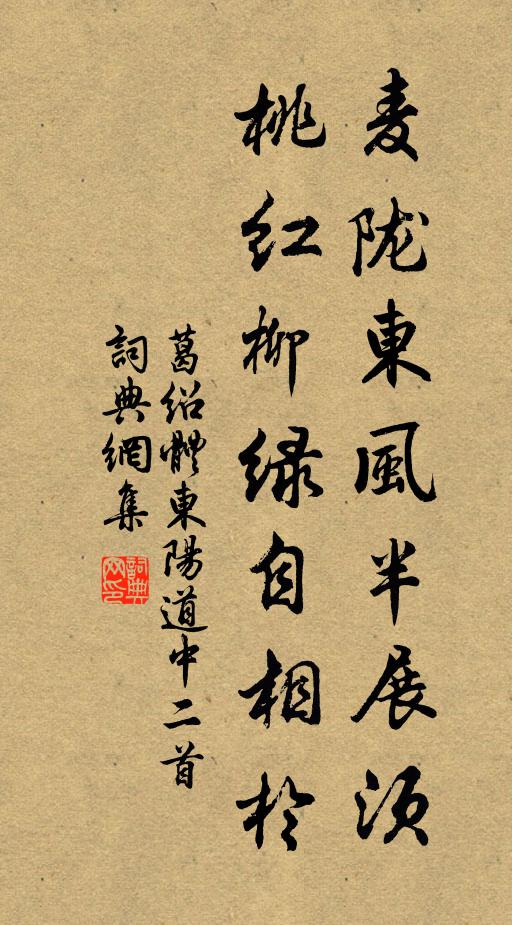 麦陇東風半展须
桃红柳緑自相於
葛绍體東陽道中二首
詞典網集
詞典網印